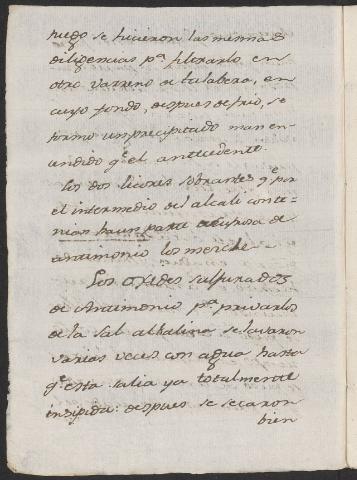 fuego se hicieron las mismas
diligencias pᵃ filtrarlo en
otro varreno de talabera, en
cuyo fondo, despues de frio, se
formo un precipitado man en-
cendido qᵉ el antecedente.
Los dos licores sobrantes qᵉ por
el intermedio del alcali conte-
nian haun parte
antimonio los merclè
Los oxides sulfurados
de Antimonio pᵃ privarlos
de la sal alkalina se lavaron
varias veces con agua hasta
qᵉ esta salia ya totalmente
insipida: despues se secaron
bien